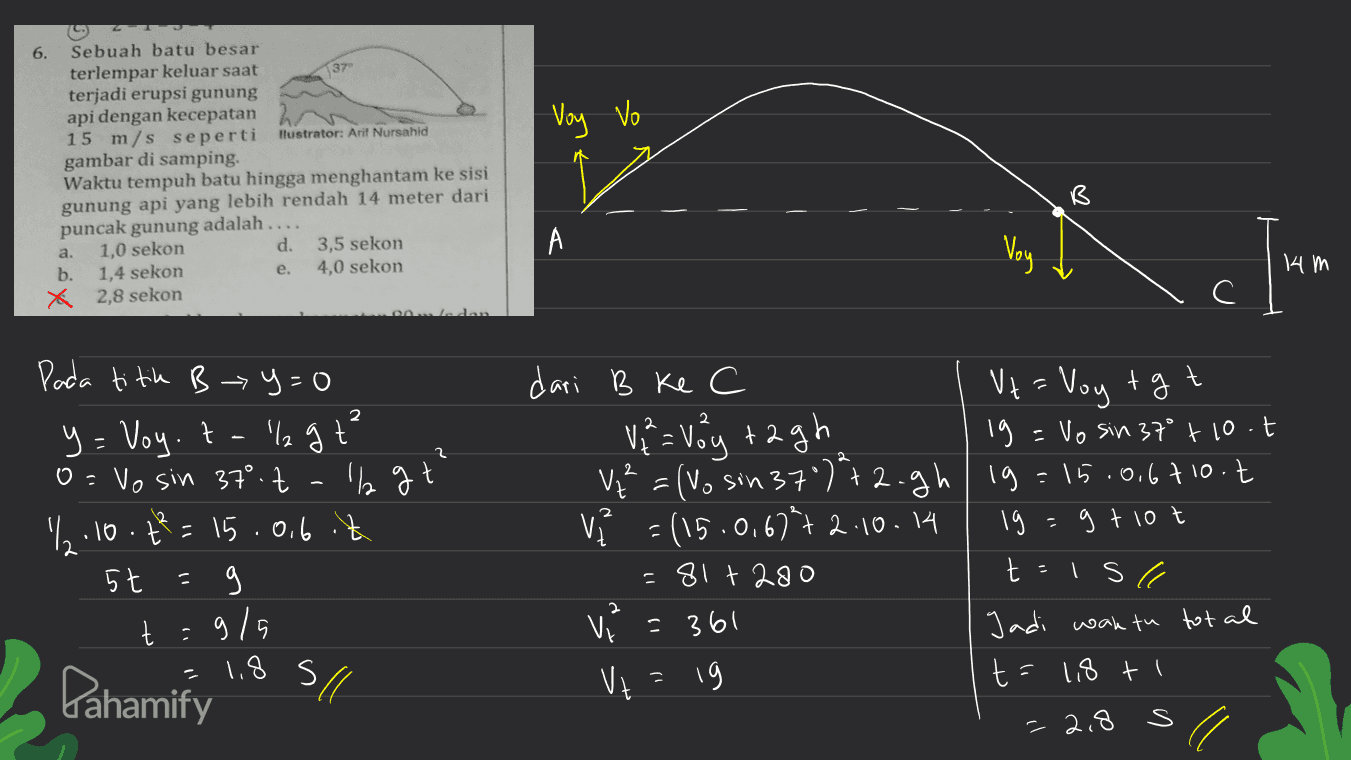 6. Sebuah batu besar
terlempar keluar saat
terjadi erupsi gunung
api dengan kecepatan
15 m/s seperti
gambar di samping.
37°
Ilustrator: Arif Nursahid
Waktu tempuh batu hingga menghantam ke sisi
gunung api yang lebih rendah 14 meter dari
puncak gunung adalah ....
a. 1,0 sekon
b. 1,4 sekon
2,8 sekon
d. 3,5 sekon
e. 4,0 sekon
Voy Vo
A
B
Voy
C
14 m
Pada titik B → y = 0
y = Voy. t - 1/2 g t²
0 = Vo sin 37°. t - 1/2 g t²
1/2 . 10 . t² = 15 . 0,6 . t
5t = 9
t = 9/5
= 1,8 S
dari B ke C
Vt² = Voy² + 2gh
Vt² = (Vo sin 37°)² + 2.gh
Vt² = (15.0,6)² + 2.10.14
= 81 + 280
Vt² = 361
Vt = 19
Vt = Voy + g t
19 = Vo sin 37° + 10 . t
19 = 15 . 0,6 + 10 . t
19 = 9 + 10 t
t = 1 S
Jadi waktu total
t = 1,8 + 1
= 2,8 S
Pahamify